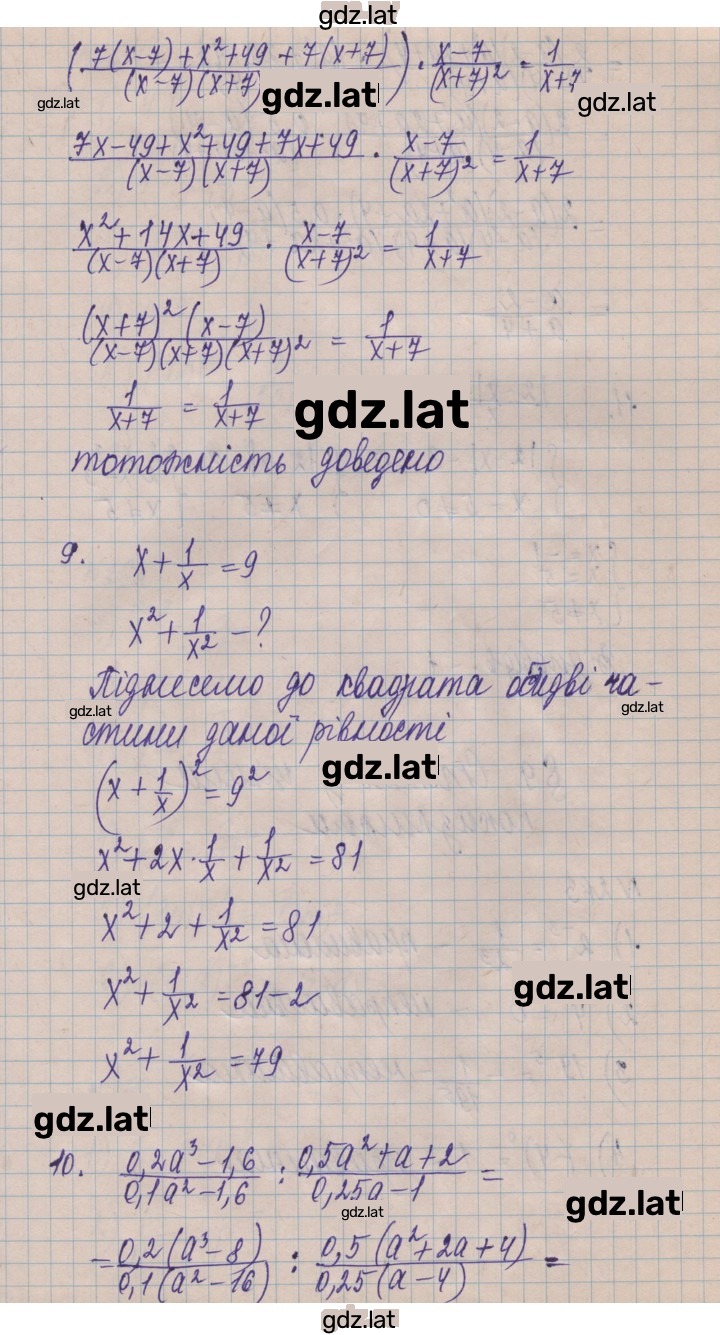 gdz.lat
(7(x-7)+x²+49+7(x+7))/((x-7)(x+7)) · (x-7)/(x+7)² = 1/(x+7)
gdz.lat gdz.lat gdz.lat
(7x-49+x²+49+7x+49)/((x-7)(x+7)) · (x-7)/(x+7)² = 1/(x+7)
(x²+14x+49)/((x-7)(x+7)) · (x-7)/(x+7)² = 1/(x+7)
((x+7)²(x-7))/((x-7)(x+7)(x+7)²) = 1/(x+7)
1/(x+7) = 1/(x+7)
gdz.lat
тотожність доведено
9. x + 1/x = 9
x² + 1/x² - ?
Піднесемо до квадрата обидві ча-
gdz.lat gdz.lat
стини даної рівності
gdz.lat
(x + 1/x)² = 9²
x² + 2x · 1/x + 1/x² = 81
gdz.lat
x² + 2 + 1/x² = 81
x² + 1/x² = 81 - 2
gdz.lat
x² + 1/x² = 79
gdz.lat
10. (0,2a³-1,6)/(0,1a²-1,6) : (0,5a²+a+2)/(0,25a-1) =
gdz.lat gdz.lat
= (0,2(a³-8))/(0,1(a²-16)) : (0,5(a²+2a+4))/(0,25(a-4)) =
gdz.lat